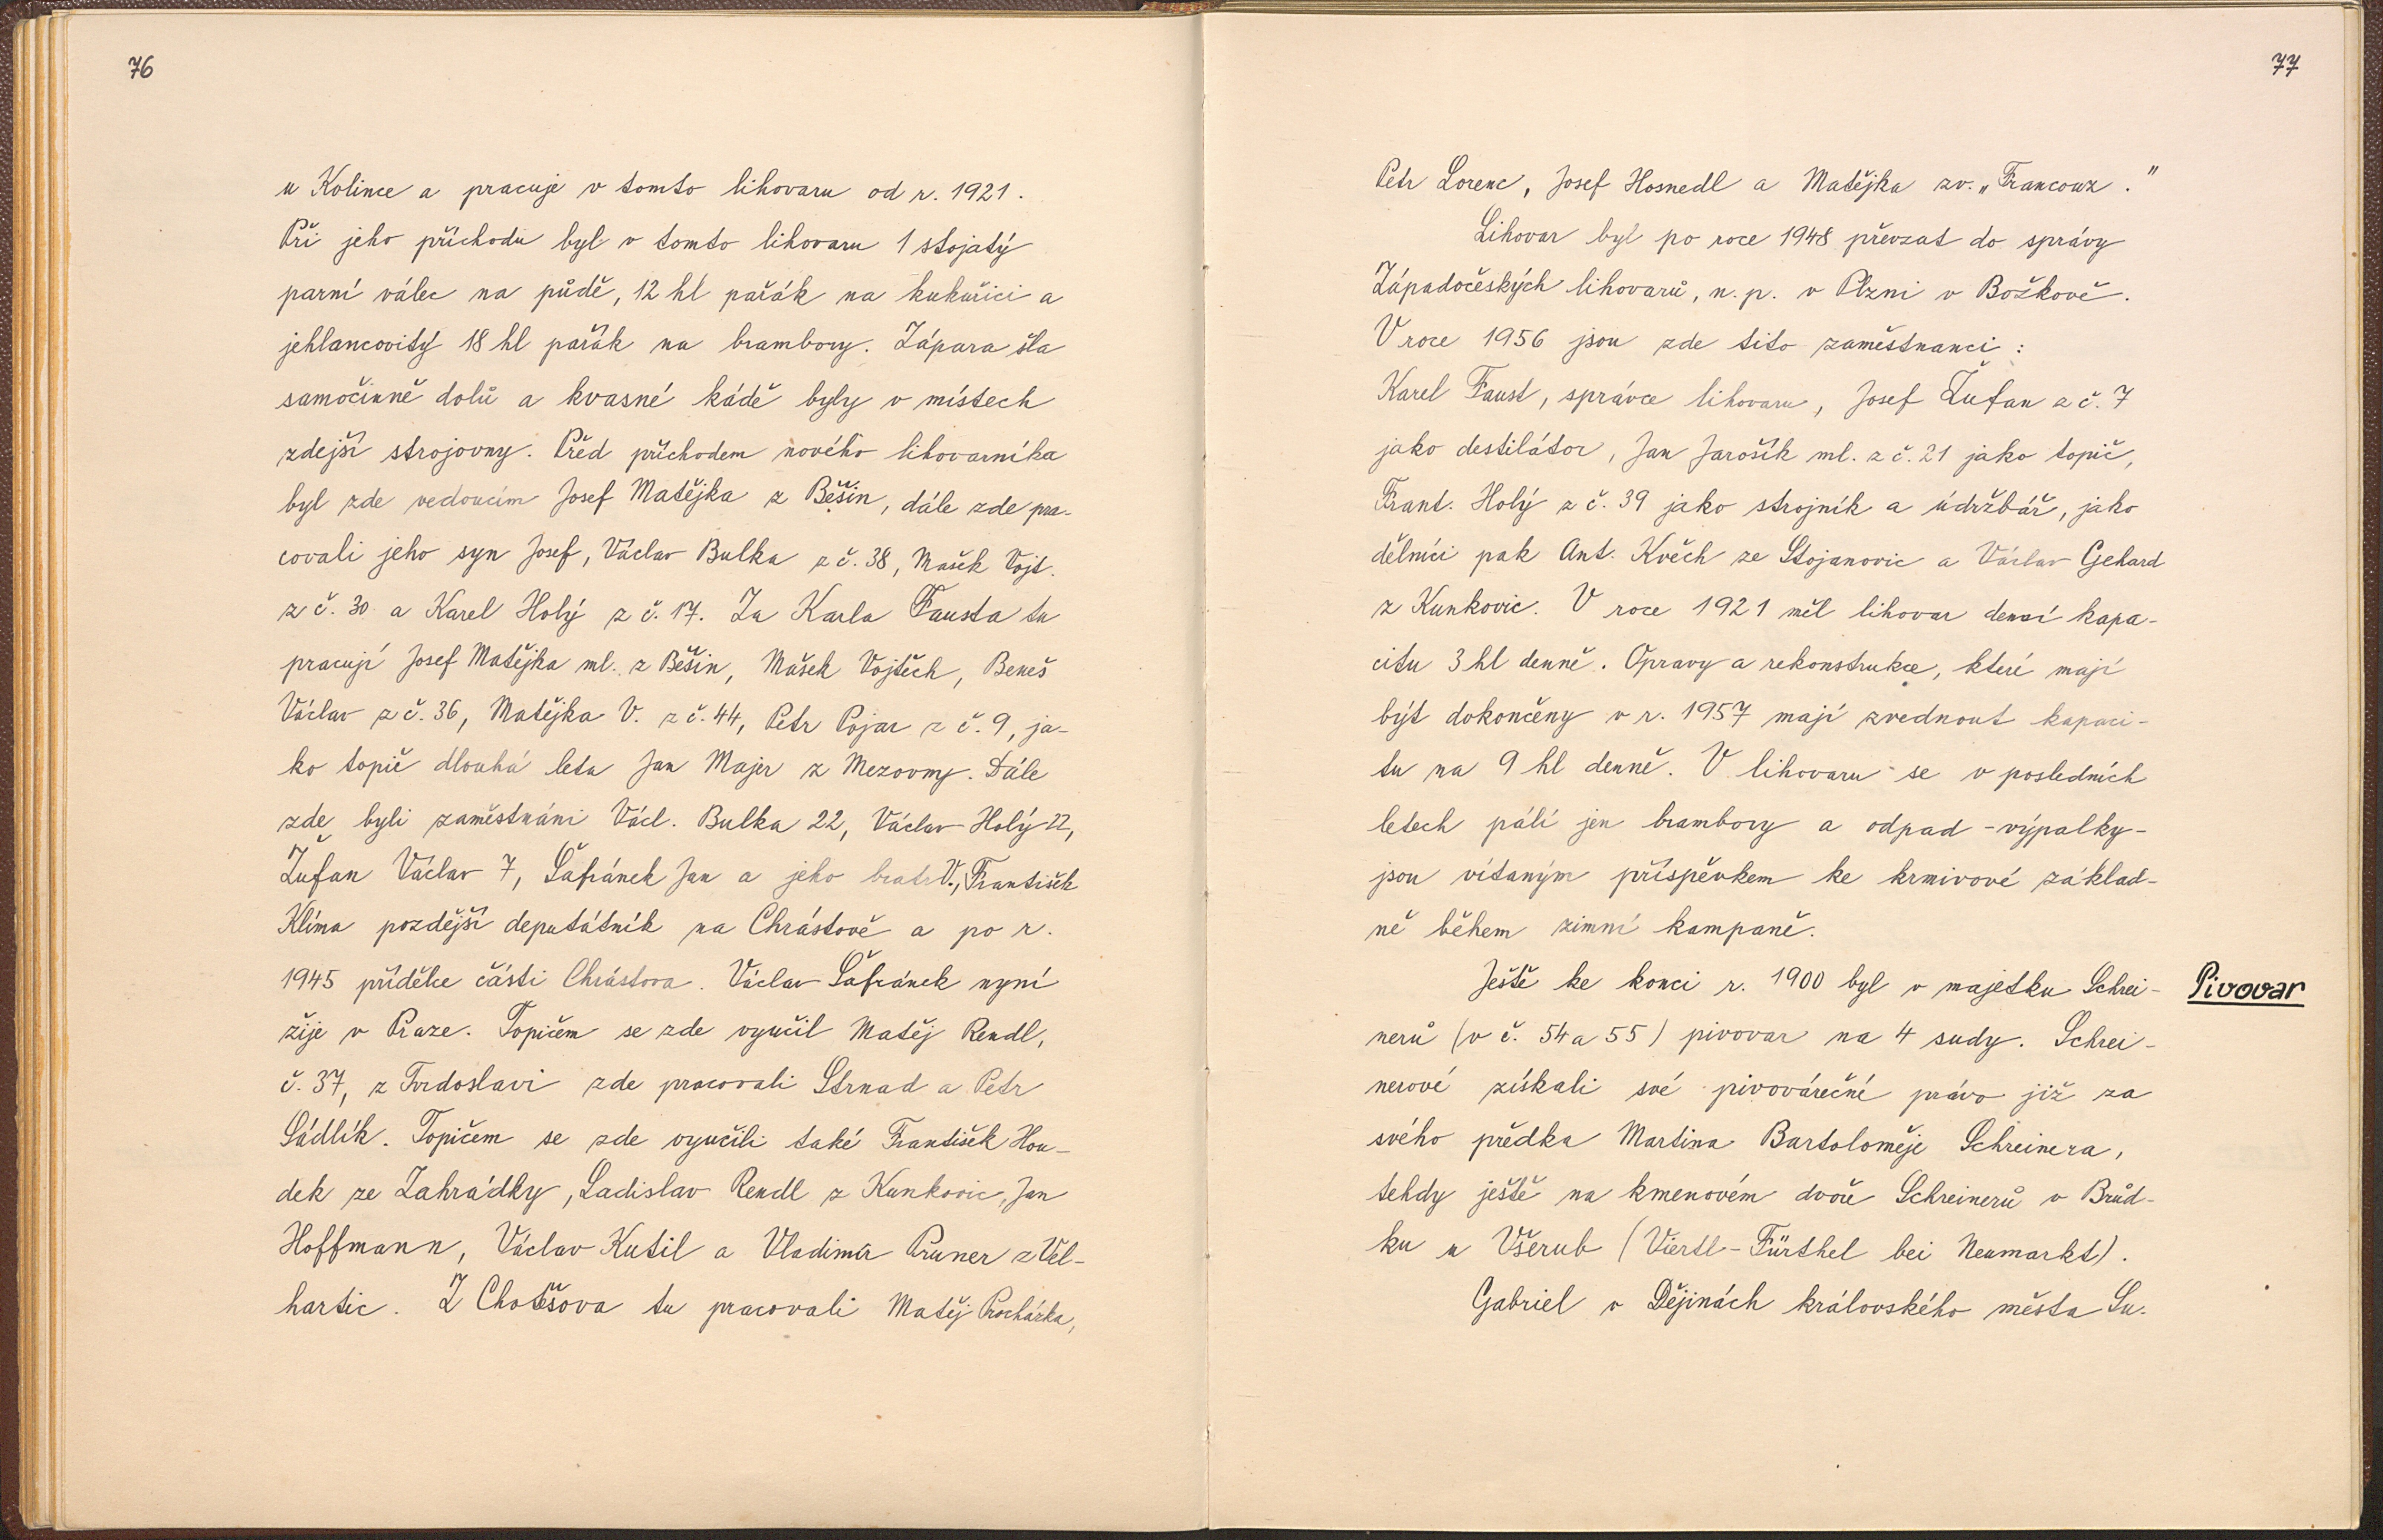 76
u Kolince a pracuje v tomto lihovaru od r. 1921.
Při jeho příchodu byl v tomto lihovaru 1 stojatý
parní válec na půdě, 12 hl pařák na kukuřici a
jehlancovitý 18 hl pařák na brambory. Zápara šla
samočinně dolů a kvasné kádě byly v místech
zdejší strojovny. Před příchodem nového lihovarníka
byl zde vedoucím Josef Matějka z Běšin, dále zde pra-
covali jeho syn Josef, Václav Bulka z č. 38, Mašek Vojt.
z č. 30 a Karel Holý z č. 17. Za Karla Fausta tu
pracují Josef Matějka ml. z Běšin, Mašek Vojtěch, Beneš
Václav z č. 36, Matějka V. z č. 44, Petr Pojar z č. 9, ja-
ko topič dlouhá leta Jan Majer z Mezovny. Dále
zde byli zaměstnáni Václ. Bulka 22, Václav Holý 22,
Žufan Václav 7, Šafránek Jan a jeho bratr V., František
Klíma pozdější deputátník na Chrástově a po r.
1945 přídělce části Chrástova. Václav Šafránek nyní
žije v Praze. Topičem se zde vyučil Matěj Rendl,
č. 37, z Tvrdoslavi zde pracovali Strnad a Petr
Sádlík. Topičem se zde vyučili také František Hou-
dek ze Zahrádky, Ladislav Rendl z Kunkovic, Jan
Hoffmann, Václav Kutil a Vladimír Pruner z Vel-
hartic. Z Chotěšova tu pracovali Matěj Procházka,
77
Petr Lorenc, Josef Hosnedl a Matějka zv. „Francouz."
Lihovar byl po roce 1948 převzat do správy
Západočeských lihovarů, n. p. v Plzni v Božkově.
V roce 1956 jsou zde tito zaměstnanci:
Karel Faust, správce lihovaru, Josef Žufan z č. 7
jako destilátor, Jan Jarošík ml. z č. 21 jako topič,
Frant. Holý z č. 39 jako strojník a údržbář, jako
dělníci pak Ant. Květ ze Stojanovic a Václav Gehard
z Kunkovic. V roce 1921 měl lihovar denní kapa-
citu 3 hl denně. Opravy a rekonstrukce, které mají
být dokončeny v r. 1957 mají zvednout kapaci-
tu na 9 hl denně. V lihovaru se v posledních
letech pálí jen brambory a odpad - výpalky -
jsou vítaným příspěvkem ke krmivové základ-
ně během zimní kampaně.
Ještě ke konci r. 1900 byl v majetku Schrei-
Pivovar
nerů (v č. 54 a 55) pivovar na 4 sudy. Schrei-
nerové získali své pivovárečné právo již za
svého předka Martina Bartoloměje Schreinera,
tehdy ještě na kmenovém dvoře Schreinerů v Brůd-
ku u Všerub (Viertl-Fürthel bei Neumarkt).
Gabriel v Dějinách královského města Su-